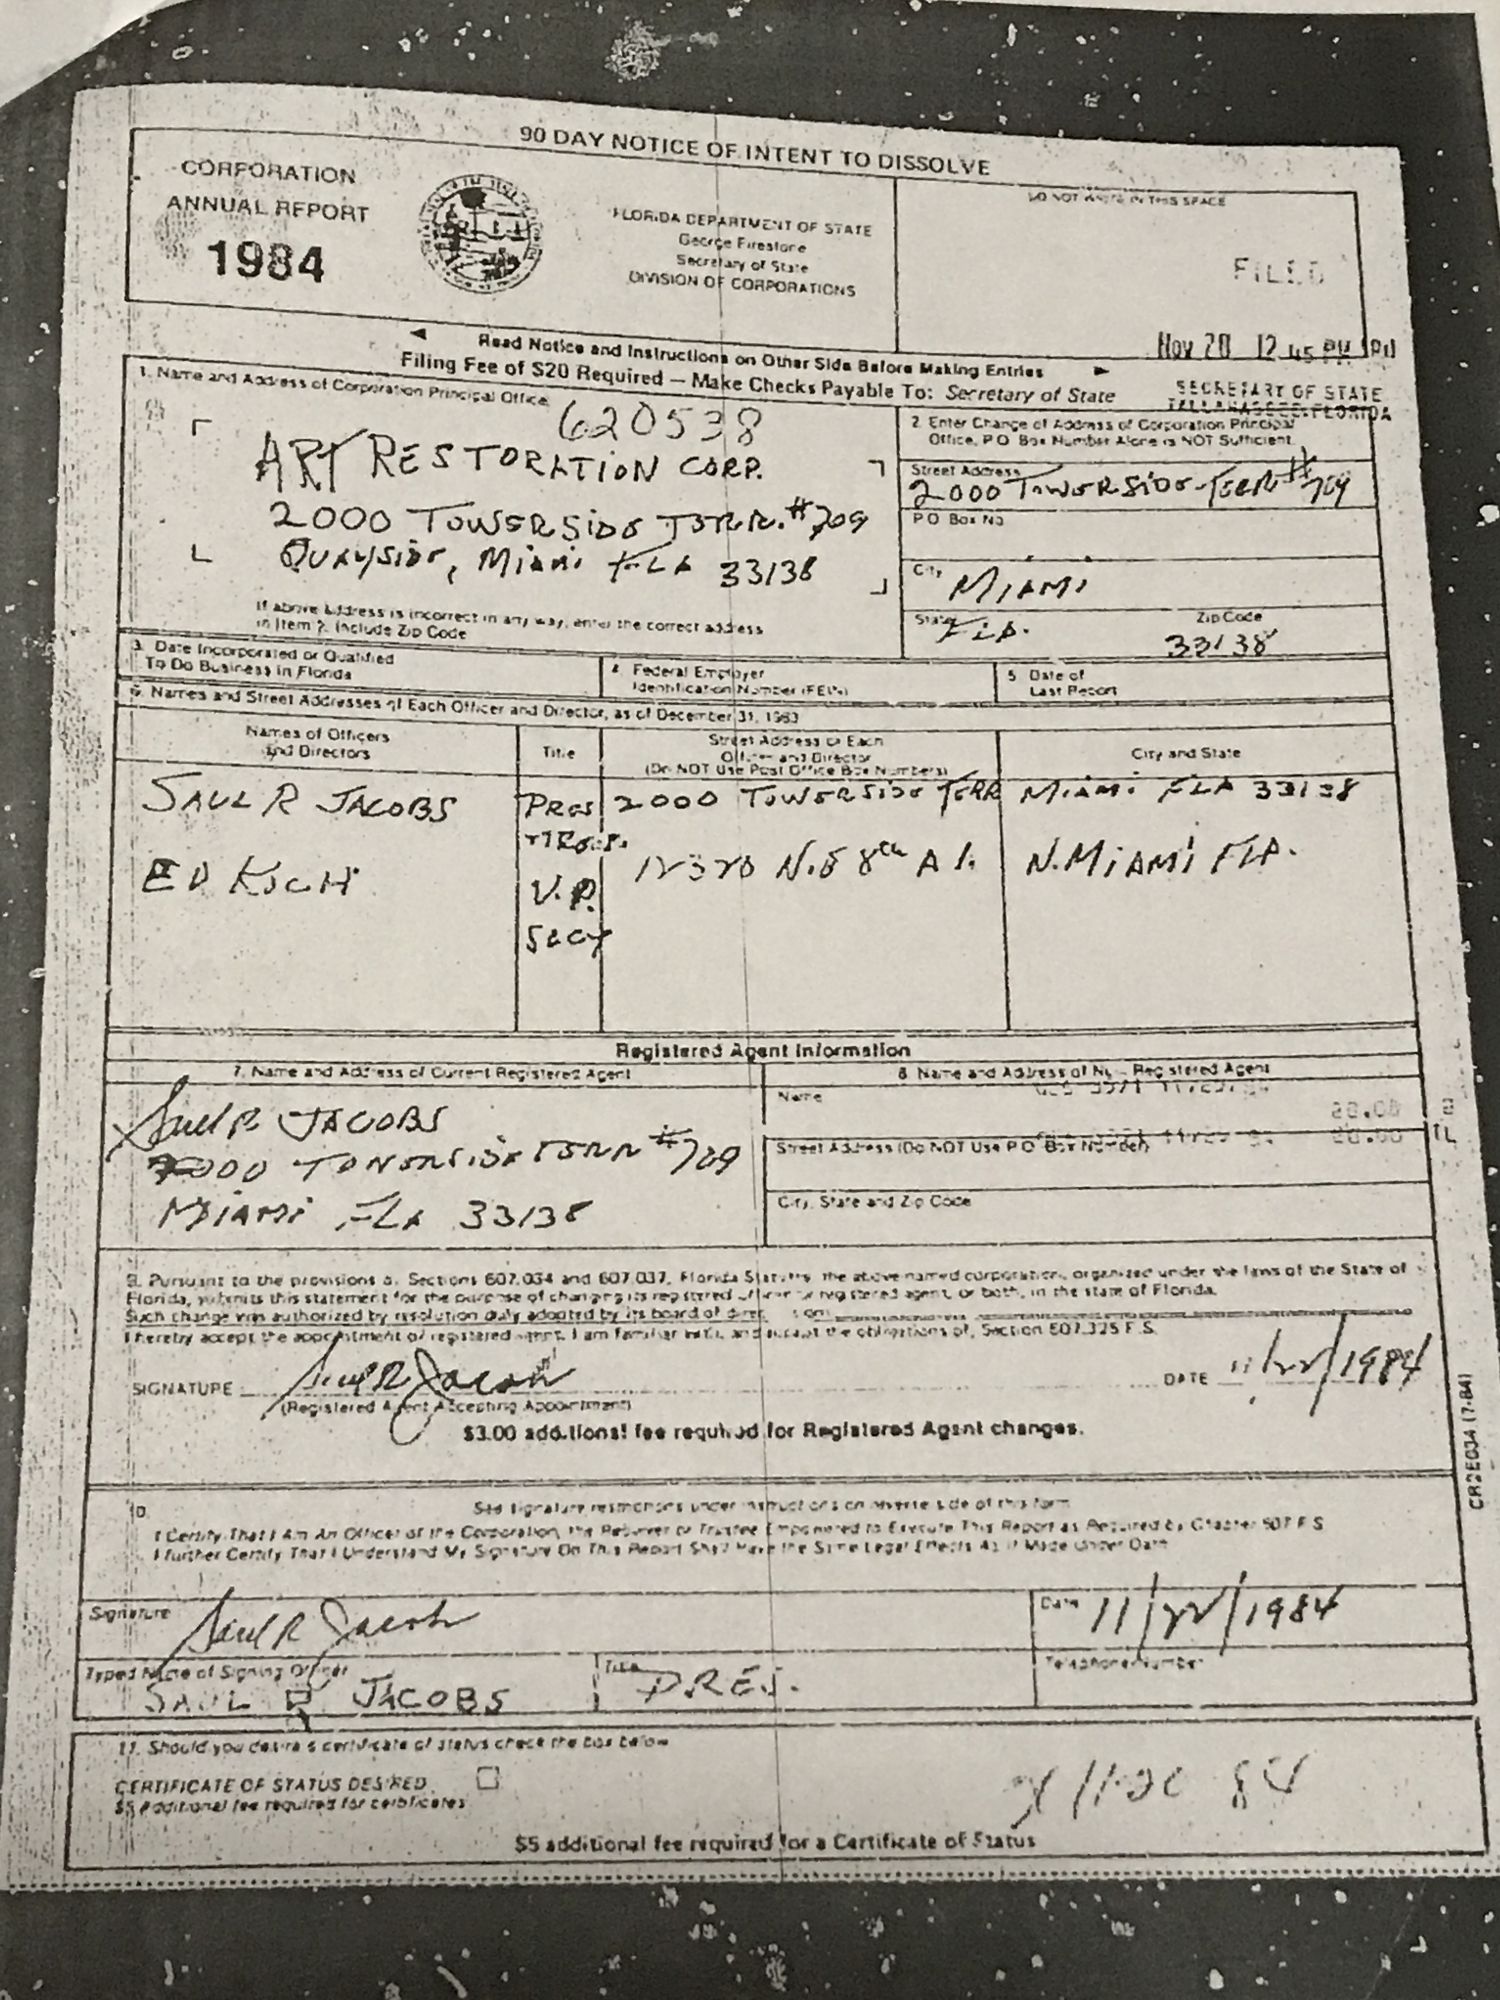 90 DAY NOTICE OF INTENT TO DISSOLVE
CORPORATION
ANNUAL REPORT
1984
FLORIDA DEPARTMENT OF STATE
George Firestone
Secretary of State
DIVISION OF CORPORATIONS
DO NOT WRITE IN THIS SPACE
FILED
Nov 20 12 45 PM
SECRETARY OF STATE
TALLAHASSEE, FLORIDA
Read Notice and Instructions on Other Side Before Making Entries
Filing Fee of $20 Required — Make Checks Payable To: Secretary of State
1. Name and Address of Corporation Principal Office
620538
ART RESTORATION CORP.
2000 TOWERSIDE TERR. #709
QUAYSIDE, MIAMI FLA 33138
If above address is incorrect in any way, enter the correct address
in Item 2. Include Zip Code
2. Enter Change of Address of Corporation Principal
Office, P.O. Box Number Alone is NOT Sufficient
Street Address
2000 TOWERSIDE TERR #709
P.O. Box No.
City
MIAMI
State
FLA.
Zip Code
33138
3. Date Incorporated or Qualified
To Do Business in Florida
4. Federal Employer
Identification Number (FEIN)
5. Date of
Last Report
6. Names and Street Addresses of Each Officer and Director, as of December 31, 1983
Names of Officers
and Directors
Title
Street Address of Each
Officer and Director
(Do NOT Use Post Office Box Numbers)
City and State
SAUL R JACOBS PRES 2000 TOWERSIDE TERR MIAMI FLA 33138
ED N.E 8th N. MIAMI FLA.
V.P.
SECY
Registered Agent Information
7. Name and Address of Current Registered Agent
Saul R JACOBS
2000 TOWERSIDE TERR #709
MIAMI FLA 33138
8. Name and Address of New Registered Agent
Name
20.00
20.00
TL
Street Address (Do NOT Use P.O. Box Number)
City, State and Zip Code
9. Pursuant to the provisions of Sections 607.034 and 607.037, Florida Statutes, the above named corporation, organized under the laws of the State of
Florida, submits this statement for the purpose of changing its registered office or registered agent, or both, in the state of Florida.
Such change was authorized by resolution duly adopted by its board of directors on
I hereby accept the appointment of registered agent. I am familiar with, and accept the obligations of, Section 607.325 F.S.
SIGNATURE Saul R Jacobs DATE 11/22/1984
(Registered Agent Accepting Appointment)
$3.00 additional fee required for Registered Agent changes.
CR2E034 (7-84)
10. See signature restrictions under instructions on reverse side of this form
I Certify That I Am An Officer of the Corporation, the Receiver or Trustee Empowered to Execute This Report as Required by Chapter 607 F.S.
I further Certify That I Understand My Signature On This Report Shall Have the Same Legal Effects As If Made Under Oath
Signature
Saul R Jacobs
Date
11/22/1984
Typed Name of Signing Officer
SAUL R JACOBS
Title
PRES.
Telephone Number
11. Should you desire a certificate of status check the box below
CERTIFICATE OF STATUS DESIRED
$5 Additional fee required for certificates
$5 additional fee required for a Certificate of Status